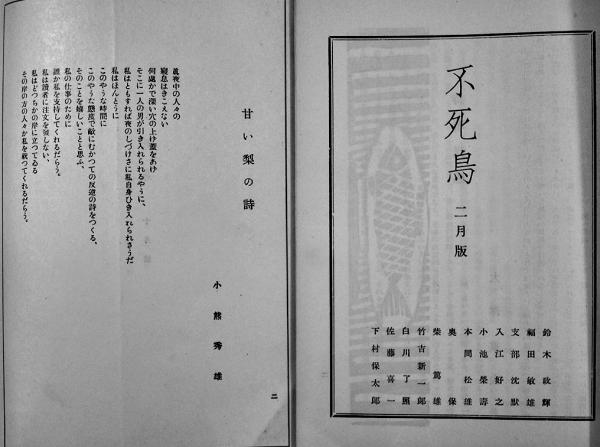 不死鳥
二月版
鈴木政輝
福田敏雄
支部沈默
入江好之
小池榮壽
本間松雄
奥保
柴篤雄
竹吉新一郎
白川了照
佐藤喜一
下村保太郎
甘い梨の詩
小熊秀雄
眞夜中の人々の
寢息はきこえない
何處かで深い穴の上げ蓋をあけ
そこに一人の男が引き入れられるやうに、
私はともすれば夜のしづけさに私自身ひき入れられさうだ
私はほんとうに
このやうな時間に
このやうな態度で敵にむかつての反逆の詩をつくる、
そのことを嬉しいことと思ふ、
私の仕事のために
誰が私を支持してくれるだらう。
私は讀者に注文を發しない、
私はどつちかの岸に立つてゐる
その岸の方の人々が私を救つてくれるだらう。
二